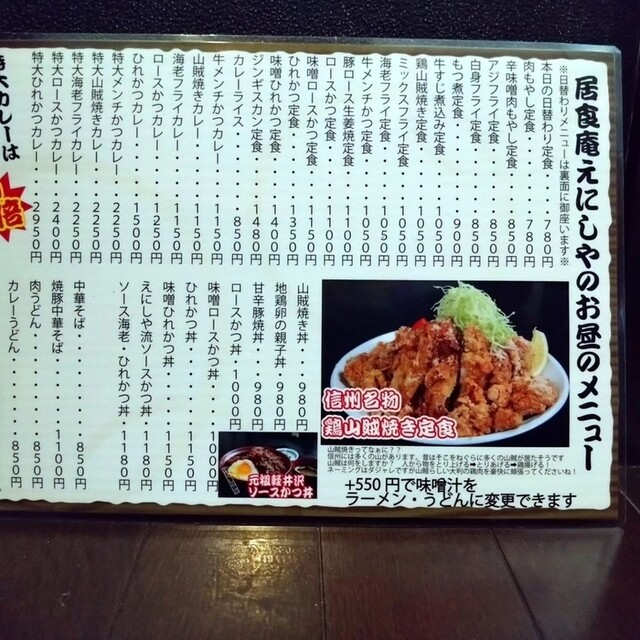 居食庵えにしやのお昼のメニュー
※日替わりメニューは裏面に御座います※
本日の日替わり定食・・780円
肉もやし定食・・・・・780円
辛味噌肉もやし定食・・850円
アジフライ定食・・・・850円
白身フライ定食・・・・850円
もつ煮定食・・・・・・900円
牛すじ煮込み定食・・1050円
鶏山賊焼き定食・・・1050円
ミックスフライ定食・1050円
海老フライ定食・・・1050円
牛メンチかつ定食・・1050円
豚ロース生姜焼定食・1050円
ロースかつ定食・・・1100円
味噌ロースかつ定食・1150円
ひれかつ定食・・・・1350円
味噌ひれかつ定食・・1400円
ジンギスカン定食・・1480円
カレーライス・・・・・850円
牛メンチかつカレー・1150円
山賊焼きカレー・・・1150円
海老フライカレー・・1150円
ロースかつカレー・・1250円
ひれかつカレー・・・1500円
特大メンチかつカレー・2250円
特大山賊焼きカレー・・2250円
特大海老フライカレー・2250円
特大ロースかつカレー・2400円
特大ひれかつカレー・・2950円
特大カレーは
倍
山賊焼き丼・・・980円
地鶏卵の親子丼・・980円
甘辛豚焼丼・・・980円
ロースかつ丼・・1000円
味噌ロースかつ丼・
ひれかつ丼・・・・1150円
味噌ひれかつ丼・・
えにしや流ソースかつ丼・1180円
ソース海老・ひれかつ丼・1180円
中華そば・・・・・・・850円
焼豚中華そば・・・・1100円
肉うどん・・・・・・・850円
カレーうどん・・・・・850円
信州名物
鶏山賊焼き定食
山賊焼きってなぁに??
信州には多くの山があります。昔はそこをねぐらに多くの山賊が居たそうです
山賊は何をしますか? 人から物をとり上げる➡とりあげる➡鶏揚げる!
ネーミングはダジャレですが山賊らしい大判の鶏肉を豪快に頬張ってくださいね!
元祖軽井沢
ソースかつ丼
+550円で味噌汁を
ラーメン・うどんに変更できます